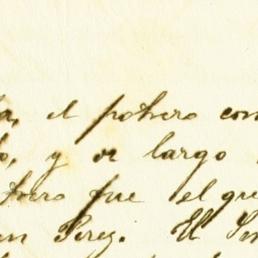 a, el potrero con
o, y de largo
trero fue el que
n Perez. El